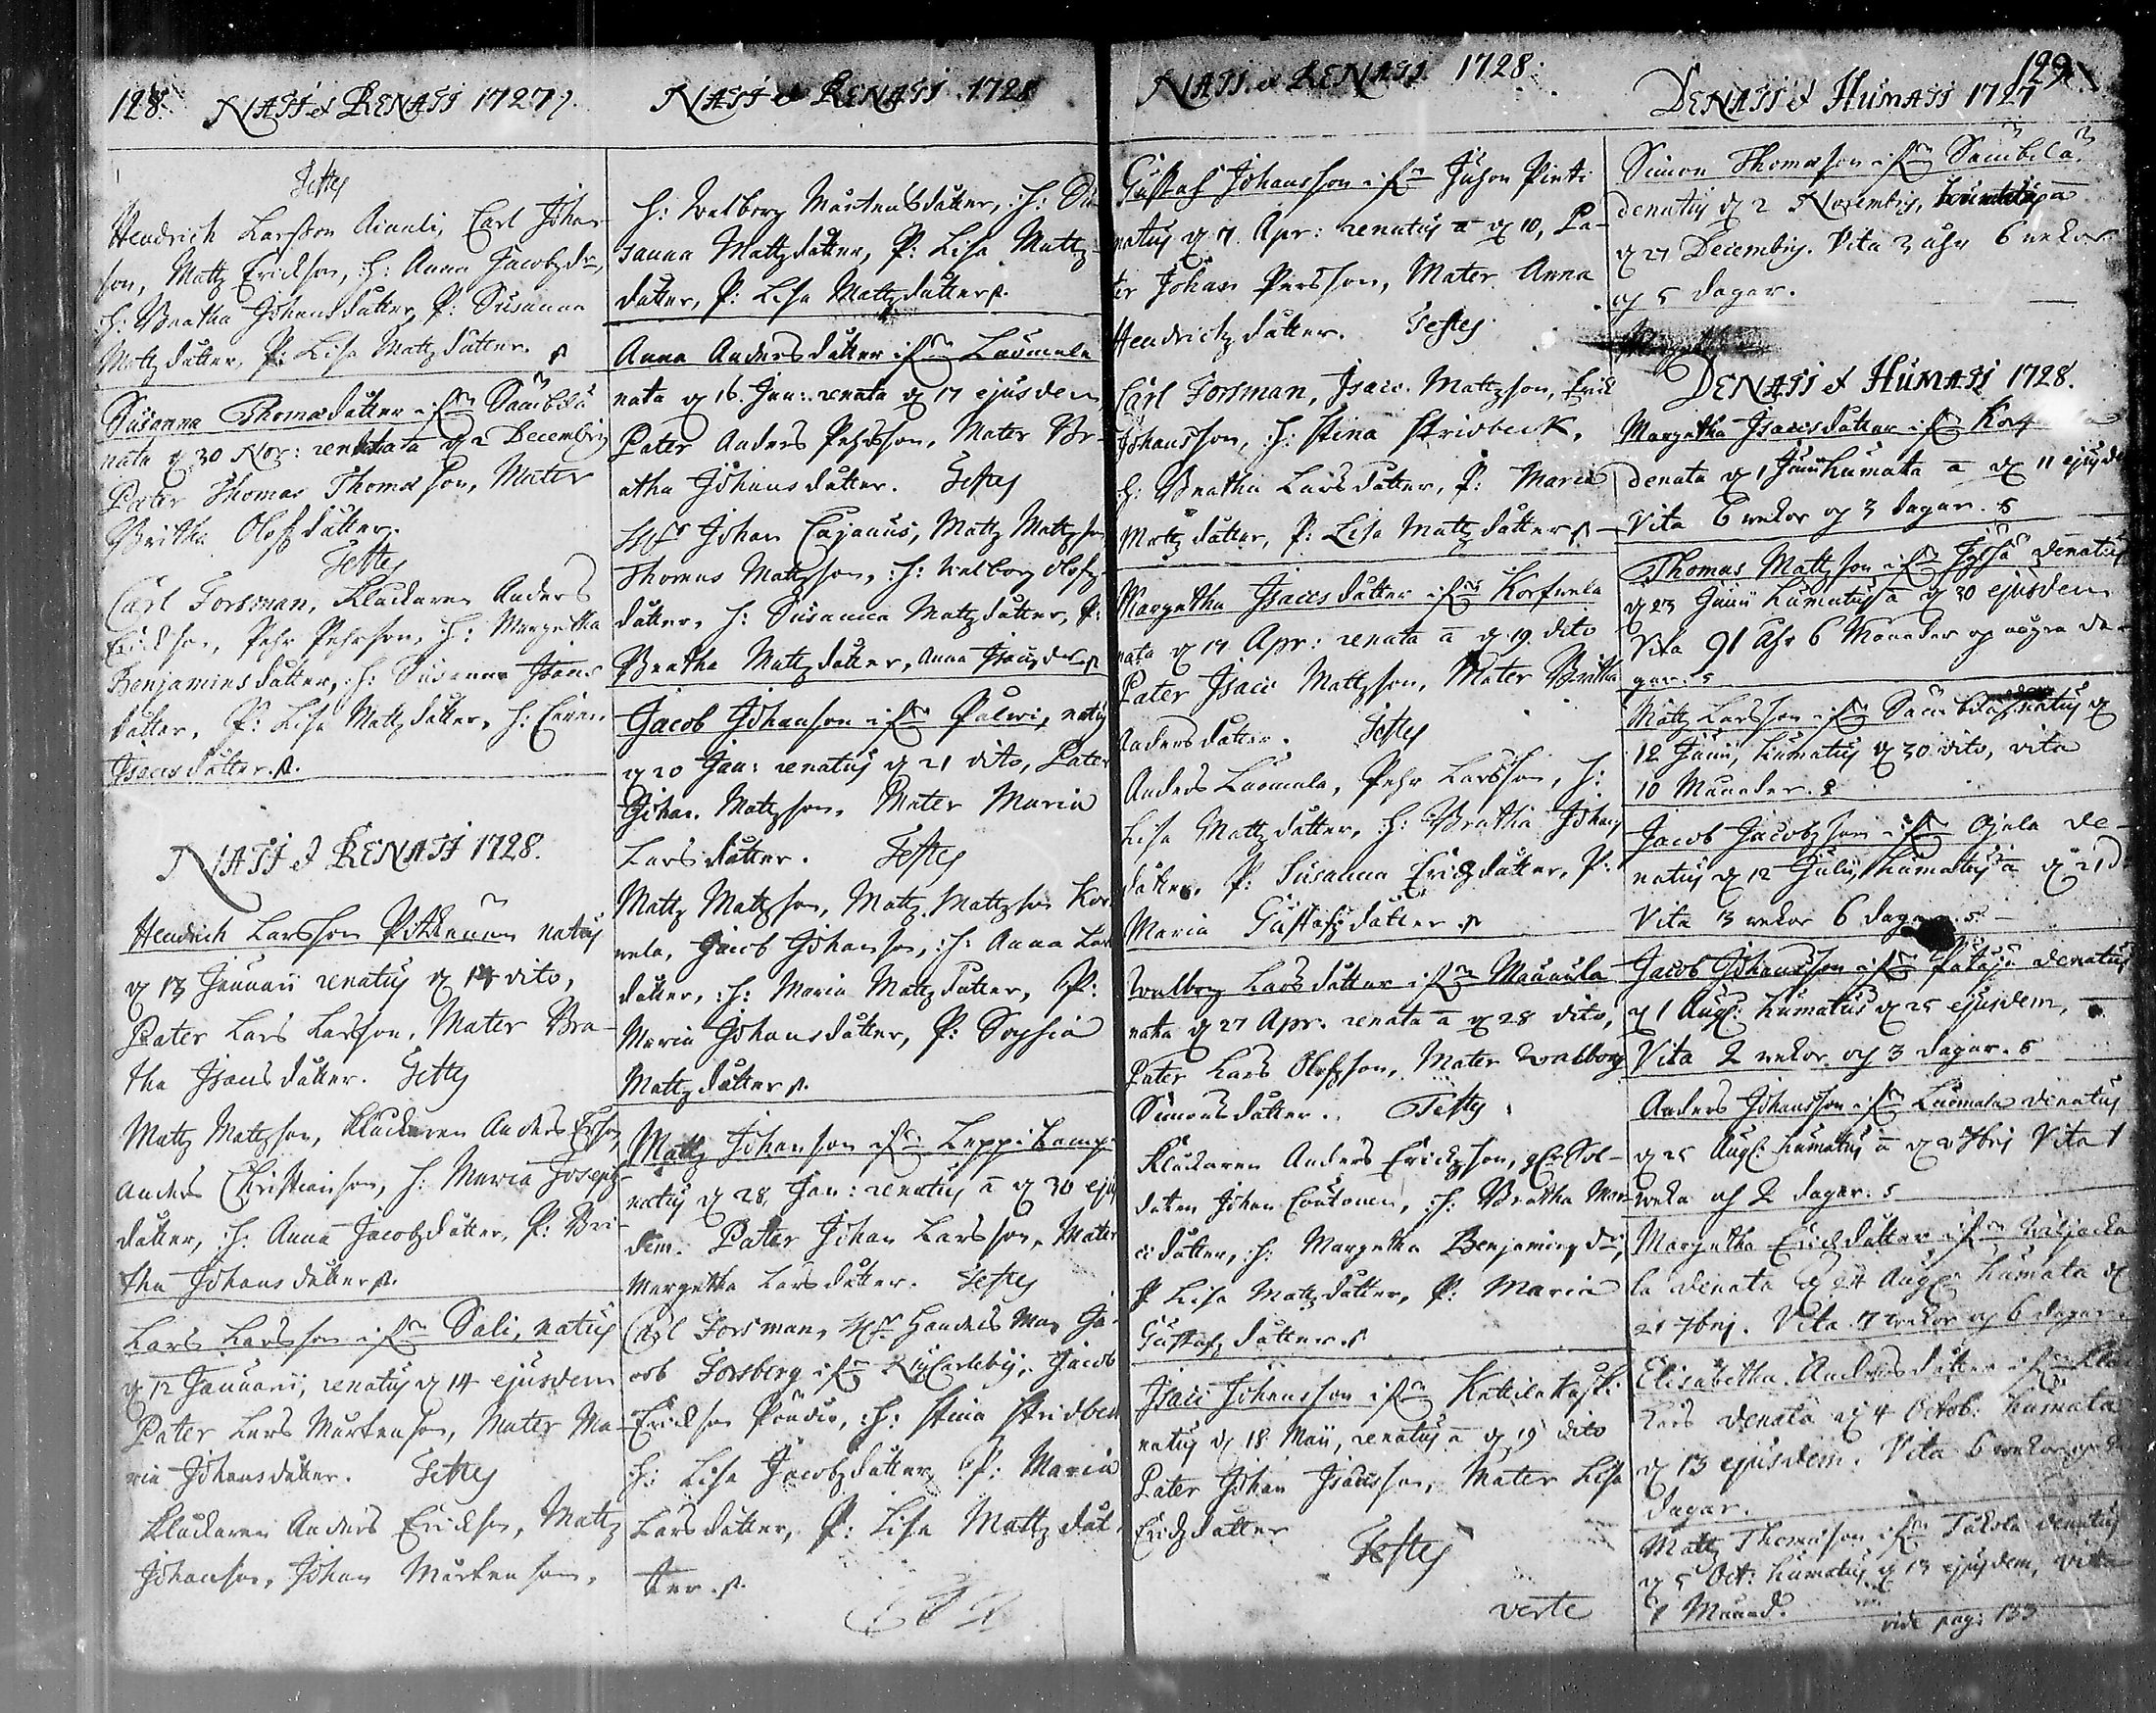 128. NATI et RENATI 1727.
Testes
Hendrich Larsson Ainali, Carl Johan
son, Mattz Erickson, H: Anna Jacobzdr,
H: Breatha Johansdatter, P: Susanna
Mattzdatter, P: Lisa Mattzdatter.
Susanna Thomædatter ifrn
nata d 30 Nov: renata d 2 Decembris
Pater Thomas Thomæson, Mater
Britha Olofzdatter.
Testes
Carl Forsman, Klackaren Anders
Erickson, Pehr Pehrson, H: Margetha
Benjaminsdatter, H: Susanna Isacs
datter, P: Lisa Mattzdatter, H:
Isacsdatter.
NATI et RENATI 1728.
Hendrich Larsson natus
d 13 Januarii renatus d 14 dito,
Pater Lars Larsson, Mater Brea-
tha Isacsdatter. Testes
Mattz Mattzson, Klackaren Anders Erson,
Anders Christianson, H: Maria Josephz
datter, H: Anna Jacobzdatter, P: Bri-
tha Johansdatter.
Lars Larsson ifrn Sali, natus
d 12 Januarii, renatus d 14 ejusdem
Pater Lars Martenson, Mater Ma-
ria Johansdatter. Testes
Klackaren Anders Erickson, Mattz
Johanson, Johan Martenson,
NATI et RENATI 1728
H: Walborg Martensdatter, H: Su-
sanna Mattzdatter, P: Lisa Mattz-
datter, P: Lisa Mattzdatter.
Anna Andersdatter ifrn Luomala
nata d 16. Jan: renata d 17 ejusdem,
Pater Anders Pehrsson, Mater Br-
etha Johansdatter. Testes
Johan Cajanus, Mattz Mattzson
Thomas Mattzson, H: Walborg Olofz
datter, H: Susanna Mattzdatter, P:
Breatha Mattzdatter, Anna
Jacob Johanson ifrn Palvi, natus
d 20 Jan: renatus d 21 dito, Pater
Johan Mattzson, Mater Maria
Larsdatter. Testes
Mattz Mattzson, Mattz Mattzson Kor
wela, Jacob Johanson, H: Anna Lars
datter, H: Maria Mattzdatter, P:
Maria Johansdatter, P: Sophia
Mattzdatter.
Mattz Johanson ifrn Leppilampi
natus d 28 Jan: renatus d 30 ejus
dem. Pater Johan Larsson, Mater
Margetha Larsdatter. Testes
Carl Forsman, Handels Man Ja-
cob Forsberg ifrn NyCarleby, Jacob
Erickson, H: Stina Stridbeck
H: Lisa Jacobzdatter, P: Maria
Larsdatter, P: Lisa Mattzdat-
ter.
NATI et RENATI 1728.
Gustaf Johansson ifrn Pinti
natus d 7 Apr: renatus d 10, Pa-
ter Johan Persson, Mater Anna
Hendrichzdatter. Testes
Carl Forsman, Isac Mattzson, Erick
Johansson, H: Stina Stridbeck,
H: Breatha Larsdatter, P: Maria
Mattzdatter, P: Lisa Mattzdatter
Margetha Isacsdatter ifrn Korfwela
nata d 17 Apr: renata d 19 dito
Pater Isac Mattzson, Mater Britha
Andersdatter. Testes
Anders Luomala, Pehr Larsson, H:
Lisa Mattzdatter, H: Breatha Johans
datter, P: Susanna Erichzdatter, P:
Maria Gustafzdatter
Walborg Larsdatter ifrn Maunula
nata d 27 Apr: renata d 28 dito,
Pater Lars Olofzson, Mater Walborg
Simonsdatter. Testes
Klackaren Anders Erickzson, Sol-
daten Johan, H: Breatha Mar-
cidatter, H: Margetha Benjaminsdr,
P Lisa Mattzdatter, P: Maria
Gustafzdatter.
Isac Johansson ifrn
natus d 18 Maii, renatus d 19 dito
Pater Johan Isacsson, Mater Lisa
Erichzdatter
Testes
verte
129
DENATI et HUMATI 1727
Simon Thomæson ifrn
denatus d 2 Novembris,
d 27 Decembris. Vita 3 ahr 6 wekor
och 5 dagar.
DENATI et HUMATI 1728.
Margetha Isacsdatter ifrn
denata d 1 Junii humata d 11 ejusde
Vita 6 wekor och 3 dagar.
Thomas Mattzson ifrn denatus
d 23 Junii humatus d 30 ejusdem
Vita 91 Ahr 6 Monader och nogra da-
gar.
Mattz Larsson ifrn
12 Junii, humatus d 30 dito, vita
10 Monader.
Jacob Jacobzson ifrn Ojala de-
natus d 12 Julii, humatus d 21
Vita 13 wekor 6 dagar.
Jacob Johansson ifrn denatus
d 1 Aug: humatus d 25 ejusdem,
Vita 2 wekor och 3 dagar.
Anders Johansson ifrn Luomala denatus
d 25 Aug: humatus Vita 1
weka och 2 dagar.
Margetha Erichzdatter ifrn
la denata d 24 Aug: humata d
21 7bris. Vita 17 wekor och 6 dagar
Elisabetha Andersdatter ifrn
denata d 4 Octob: humata
d 13 ejusdem. Vita 6 wekor och
dagar.
Mattz Thomæson ifrn denatus
d 5 Oct: humatus d 13 ejusdem, vita
Monad.
vide pag: 133